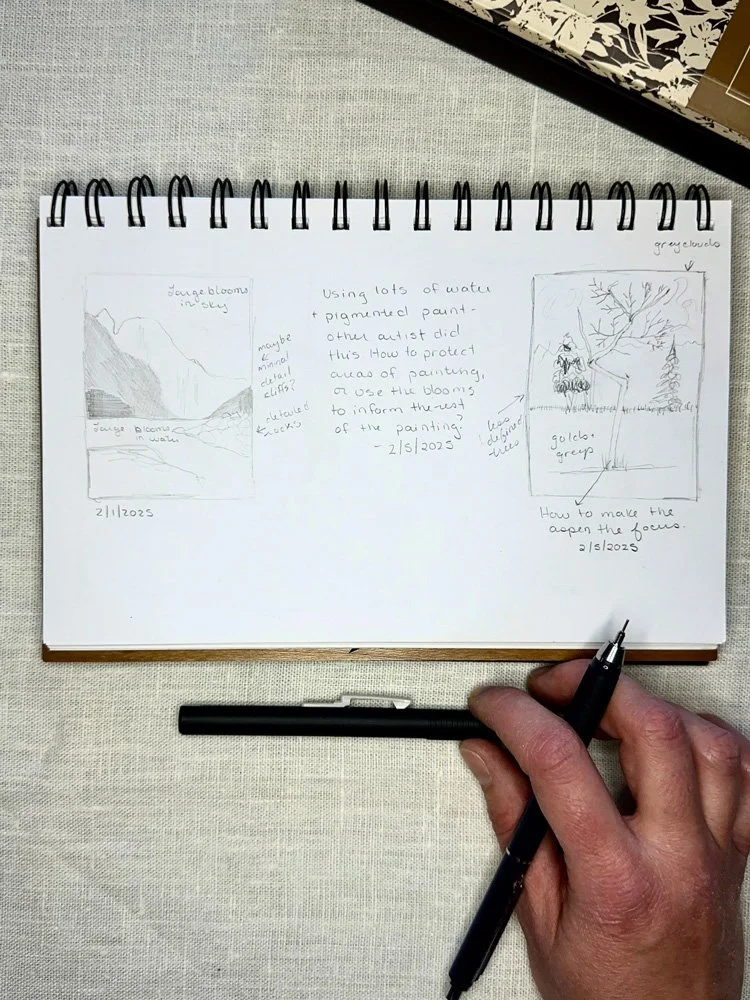 Large blooms
in sky
maybe
minimal
detail
cliffs?
detailed
rocks
Large blooms
in water
2/1/2025
Using lots of water
+ pigmented paint -
other artist did
this How to protect
areas of painting,
or use the blooms
to inform the rest
of the painting?
- 2/5/2025
grey clouds
less
defined
trees
golds +
greys
How to make the
aspen the focus.
2/5/2025